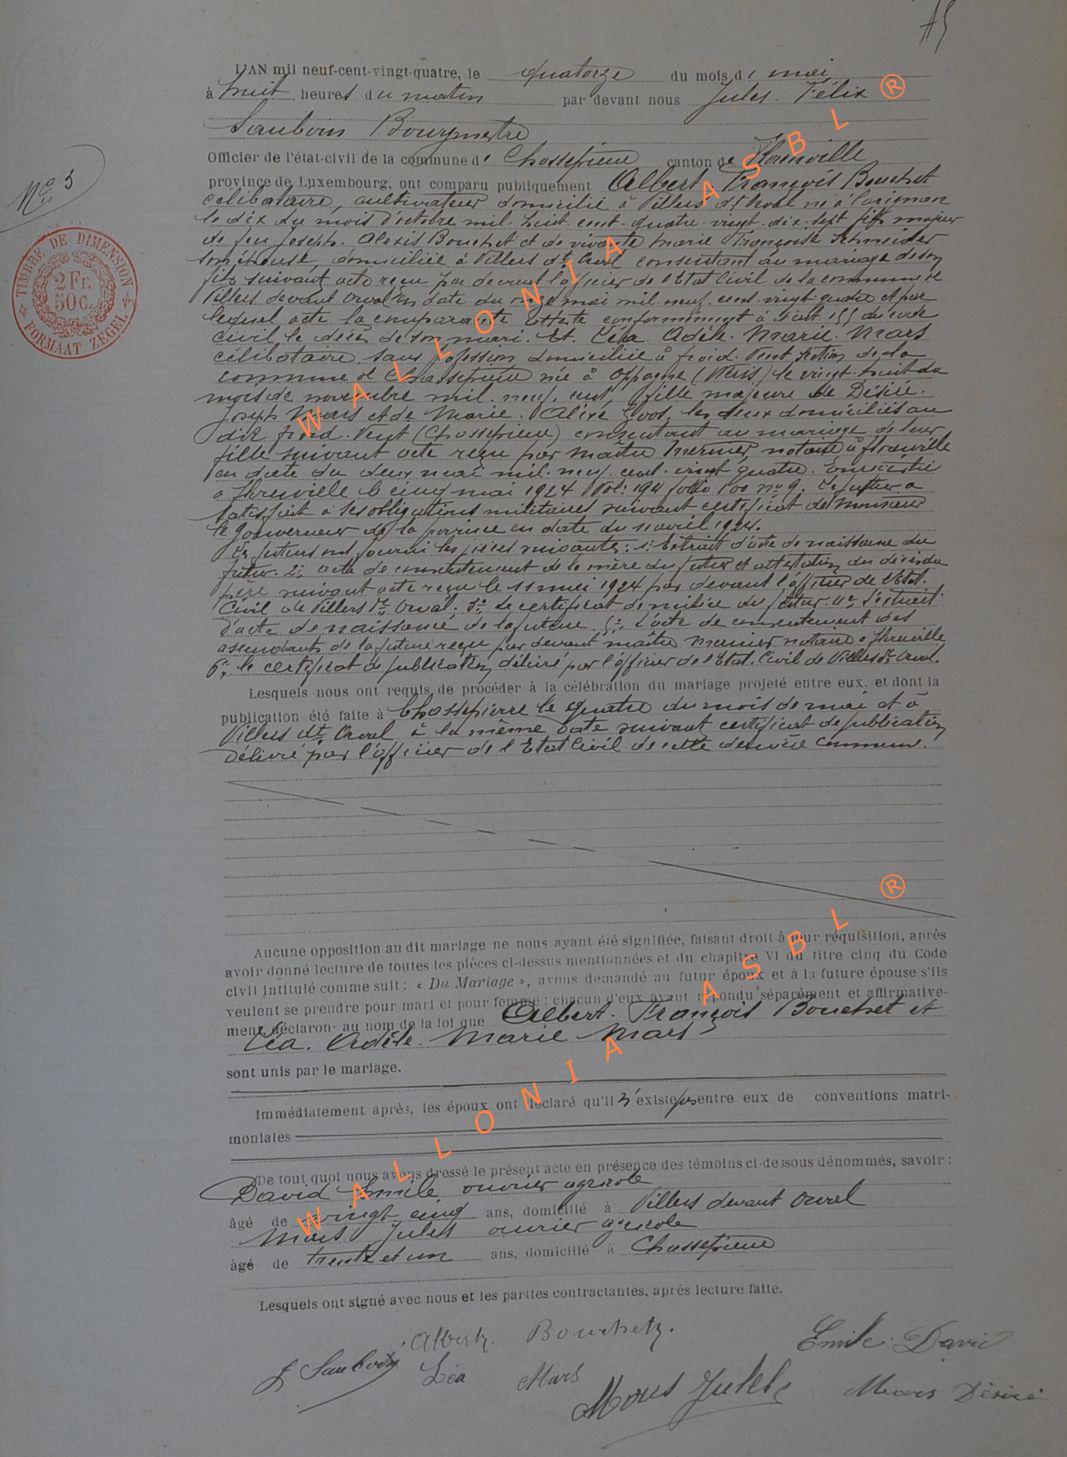 N° 3
TIMBRE DE DIMENSION
2 Fr.
50 c.
FORMAAT ZEGEL
L'AN mil neuf-cent-vingt-quatre, le quatorze du mois de mai
à huit heures du matin par devant nous Jules Félix
Sauboin Bourgmestre
Officier de l'état-civil de la commune de Chassepierre canton de Florenville
province de Luxembourg, ont comparu publiquement Albert François Bouchet
célibataire, cultivateur domicilié à Villers dt Orval né à Carignan
le dix du mois d'octobre mil huit cent quatre vingt dix sept fils majeur
de feu Joseph Alexis Bouchet et de vivante Marie Françoise Schneider
domiciliée à Villers dt Orval consentant au mariage de son
fils suivant acte reçu par devant l'officier de l'Etat Civil de la commune de
Villers devant Orval en date du onze mai mil neuf cent vingt quatre et par
lequel acte la comparante atteste conformément à l'art 155 du code
civil le décès de son mari. Et Léa Adèle Marie Mars
célibataire sans profession domiciliée à froid Vent section de la
commune de Chassepierre née à Oppagne (Weris) le vingt huit du
mois de novembre mil neuf cent, fille majeure de Désiré
Joseph Mars et de Marie Alixe Goos, les deux domiciliés au
dit froid Vent (Chassepierre) consentant au mariage de leur
fille suivant acte reçu par Maître notaire à Florenville
en date du deux mai mil neuf cent vingt quatre. Enregistré
à Florenville le cinq mai 1924 Vol: 191 folio 100 n° 9. Le futur a
satisfait à ses obligations militaires suivant certificat de Monsieur
le Gouverneur de la province en date du 11 avril 1924.
Les futurs ont fourni les pièces suivantes: 1° Extrait d'acte de naissance du
futur. 2° acte de consentement de la mère du futur et attestation du décès du
père suivant acte reçu le 11 mai 1924 par devant l'officier de l'Etat
Civil de Villers dt Orval; 3° Le certificat de milice du futur 4° L'extrait
d'acte de naissance de la future 5° L'acte de consentement des
ascendants de la future reçu par devant maître notaire à Florenville
6° le certificat de publication délivré par l'officier de l'Etat Civil de Villers dt Orval.
Lesquels nous ont requis de procéder à la célébration du mariage projeté entre eux, et dont la
publication été faite à Chassepierre le quatre du mois de mai et à
Villers dt Orval à la même date suivant certificat de publication
délivré par l'officier de l'Etat Civil de cette dernière commune.
Aucune opposition au dit mariage ne nous ayant été signifiée, faisant droit à leur réquisition, après
avoir donné lecture de toutes les pièces ci-dessus mentionnées et du chapitre VI du titre cinq du Code
civil intitulé comme suit : « Du Mariage », avons demandé au futur époux et à la future épouse s'ils
veulent se prendre pour mari et pour femme : chacun d'eux ayant répondu séparément et affirmative-
ment déclarons au nom de la loi que Albert François Bouchet et
Léa Adèle Marie Mars
sont unis par le mariage.
Immédiatement après, les époux ont déclaré qu'il n'existe pas entre eux de conventions matri-
moniales
De tout quoi nous avons dressé le présent acte en présence des témoins ci-dessous dénommés, savoir :
David Emile ouvrier agricole
âgé de vingt cinq ans, domicilié à Villers devant Orval
Mars Jules ouvrier agricole
âgé de trente et un ans, domicilié à Chassepierre
Lesquels ont signé avec nous et les parties contractantes, après lecture faite.
Albert Bouchet. Emile David
J Sauboin Léa Mars
Mars Jules Mars Désiré
WALLONIA ASBL ®
WALLONIA ASBL ®